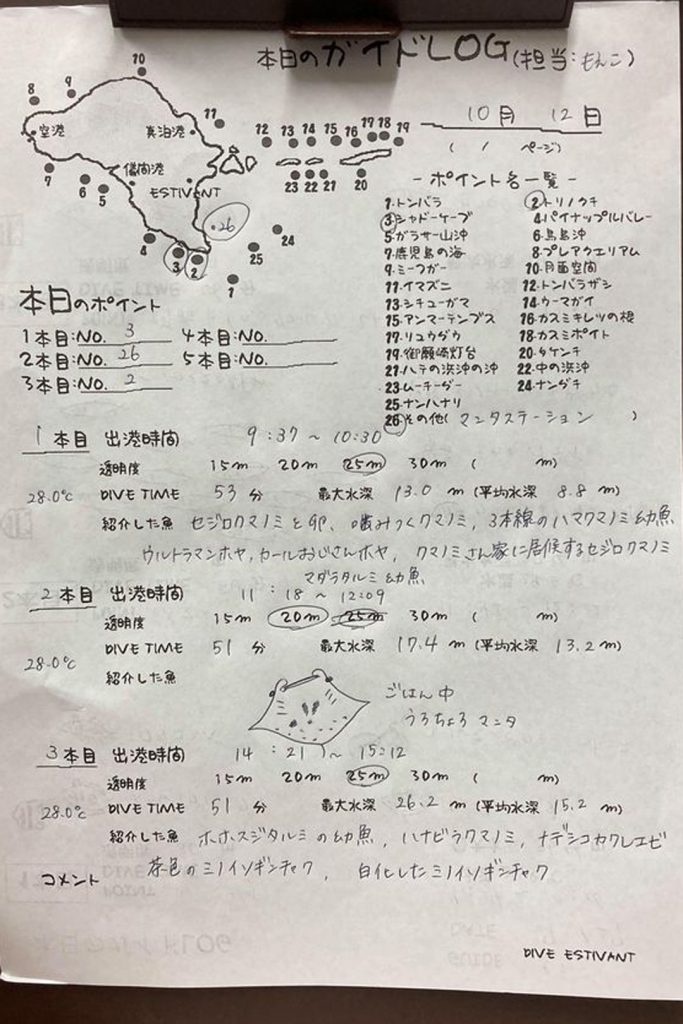 本日のガイドLOG(担当:もんこ)
10月 12日
( / ページ)
10
9
8
空港
真泊港
11
12 13 14 15 16 17 18 19
儀間港
7
6
5
ESTIVANT
23 22 21 20
26
24
4
3
2
25
1
- ポイント名一覧 -
1.トンバラ 2.トリノクチ
3.シャドーケーブ 4.パイナップルバレー
5.ガラサー山沖 6.鳥島沖
7.鹿児島の海 8.プレアクエリアム
9.ミーフガー 10.月面空間
11.イマズニ 12.トンバラザシ
13.シチューガマ 14.ウーマガイ
15.アンマーテンプス 16.カスミキレツの根
17.リュウグウ 18.カスミポイト
19.御願崎灯台 20.タケンチ
21.ハテの浜沖の沖 22.中の浜沖
23.ムーチーダー 24.ナンダチ
25.ナンハナリ
26.その他( マンタステーション )
本日のポイント
1本目:NO. 3 4本目:NO.
2本目:NO. 26 5本目:NO.
3本目:NO. 2
1本目 出港時間 9:37 ~ 10:30
透明度 15m 20m 25m 30m ( m)
28.0℃ DIVE TIME 53 分 最大水深 13.0 m (平均水深 8.8 m)
紹介した魚 セジロクマノミと卵、噛みつくクマノミ, 3本線のハマクマノミ幼魚
ウルトラマンホヤ, カールおじさんホヤ, クマノミさん家に居候するセジロクマノミ
マダラタルミ幼魚
2本目 出港時間 11:18 ~ 12:09
透明度 15m 20m 25m 30m ( m)
28.0℃ DIVE TIME 51 分 最大水深 17.4 m (平均水深 13.2 m)
紹介した魚
ごはん中
うろちょろ マンタ
3本目 出港時間 14:21 ~ 15:12
透明度 15m 20m 25m 30m ( m)
28.0℃ DIVE TIME 51 分 最大水深 26.2 m (平均水深 15.2 m)
紹介した魚 ホホスジタルミの幼魚, ハナビラクマノミ, ナデシコカクレエビ
茶色のミノイソギンチャク, 白化したミノイソギンチャク
コメント
DIVE ESTIVANT